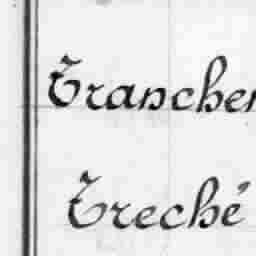 Trancher
Treché